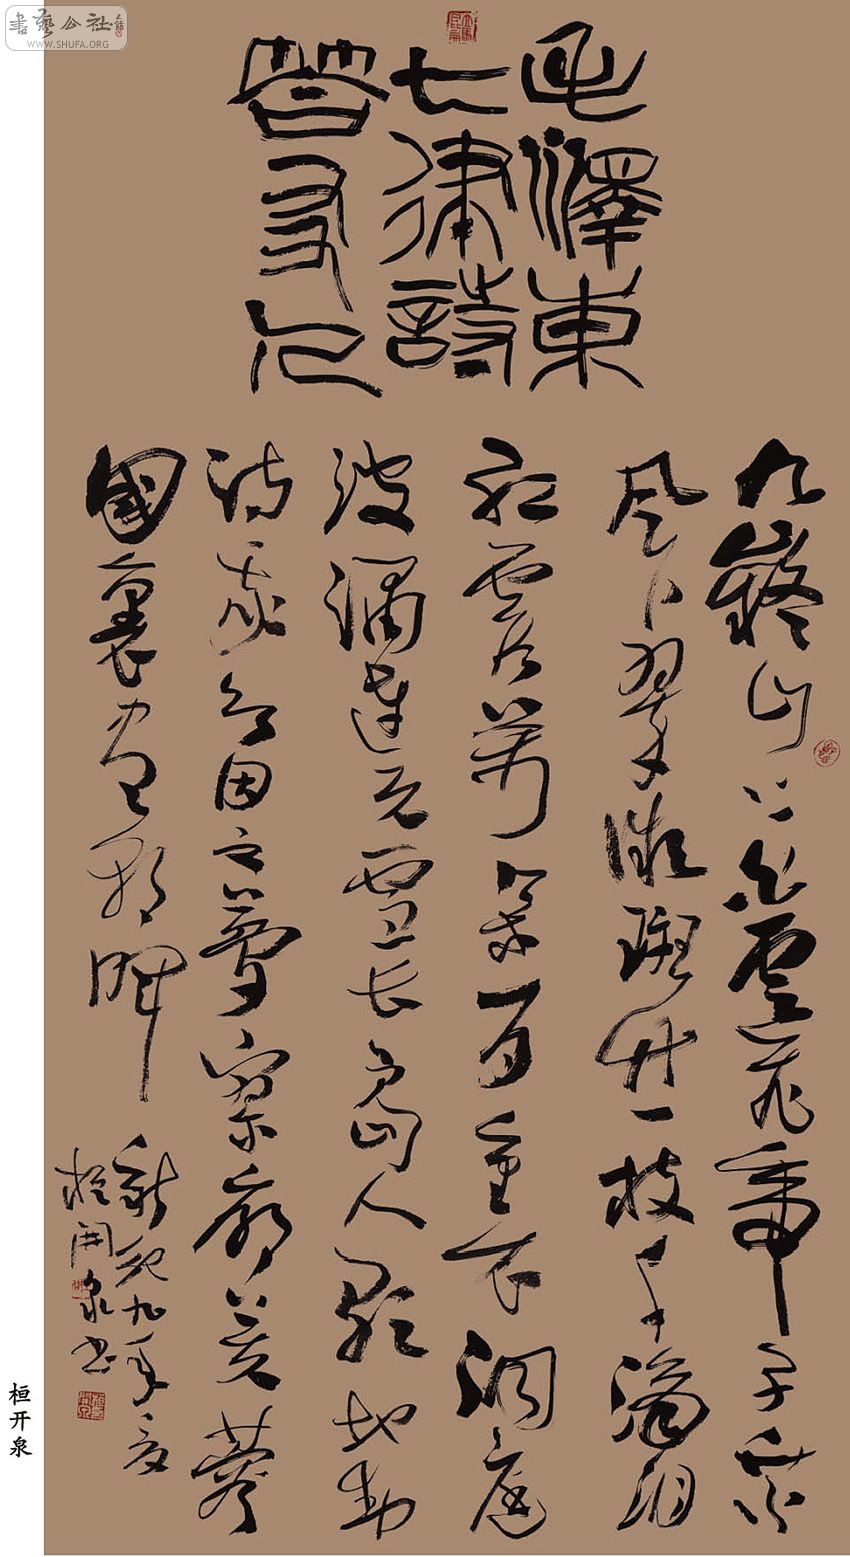 書藝公社
WWW.SHUFA.ORG
毛澤東
七律詩
答友人
九嶷山上白雲飛帝子乘
风下翠微斑竹一枝千滴泪
红霞萬朵百重衣洞庭
波涌連天雪長島人歌地動
诗我欲因之夢寥廓芙蓉
國裏盡朝暉
新纪九年夏
桓開泉书
桓开泉